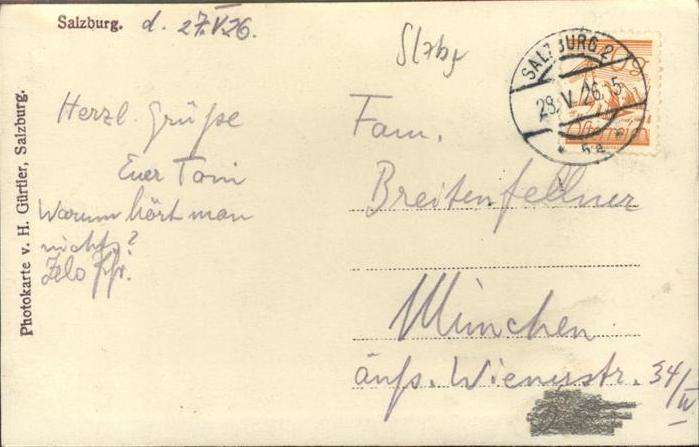 Salzburg. d. 27.V.26.
Slzbg
SALZBURG 2
28.V.26.15
5a
Österreich
Photokarte v. H. Gürtler, Salzburg.
Herzl. Grüße
Euer Toni
Warum hört man
nichts?
Fam.
Breitenfellner
München
äuß. Wienerstr. 34/IV